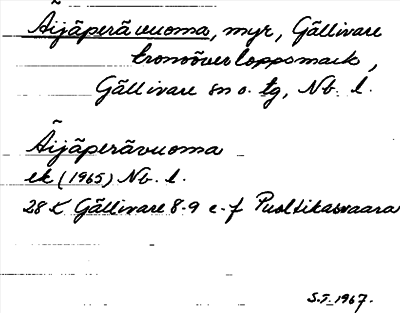 Äijäperävuoma, myr, Gällivare
kronoöverloppsmark,
Gällivare sn o. tg, Nb. l.
Äijäperävuoma
ek (1965) Nb. l.
28 K Gällivare 8-9 e-f Puoltikasvaara
S.S. 1967.